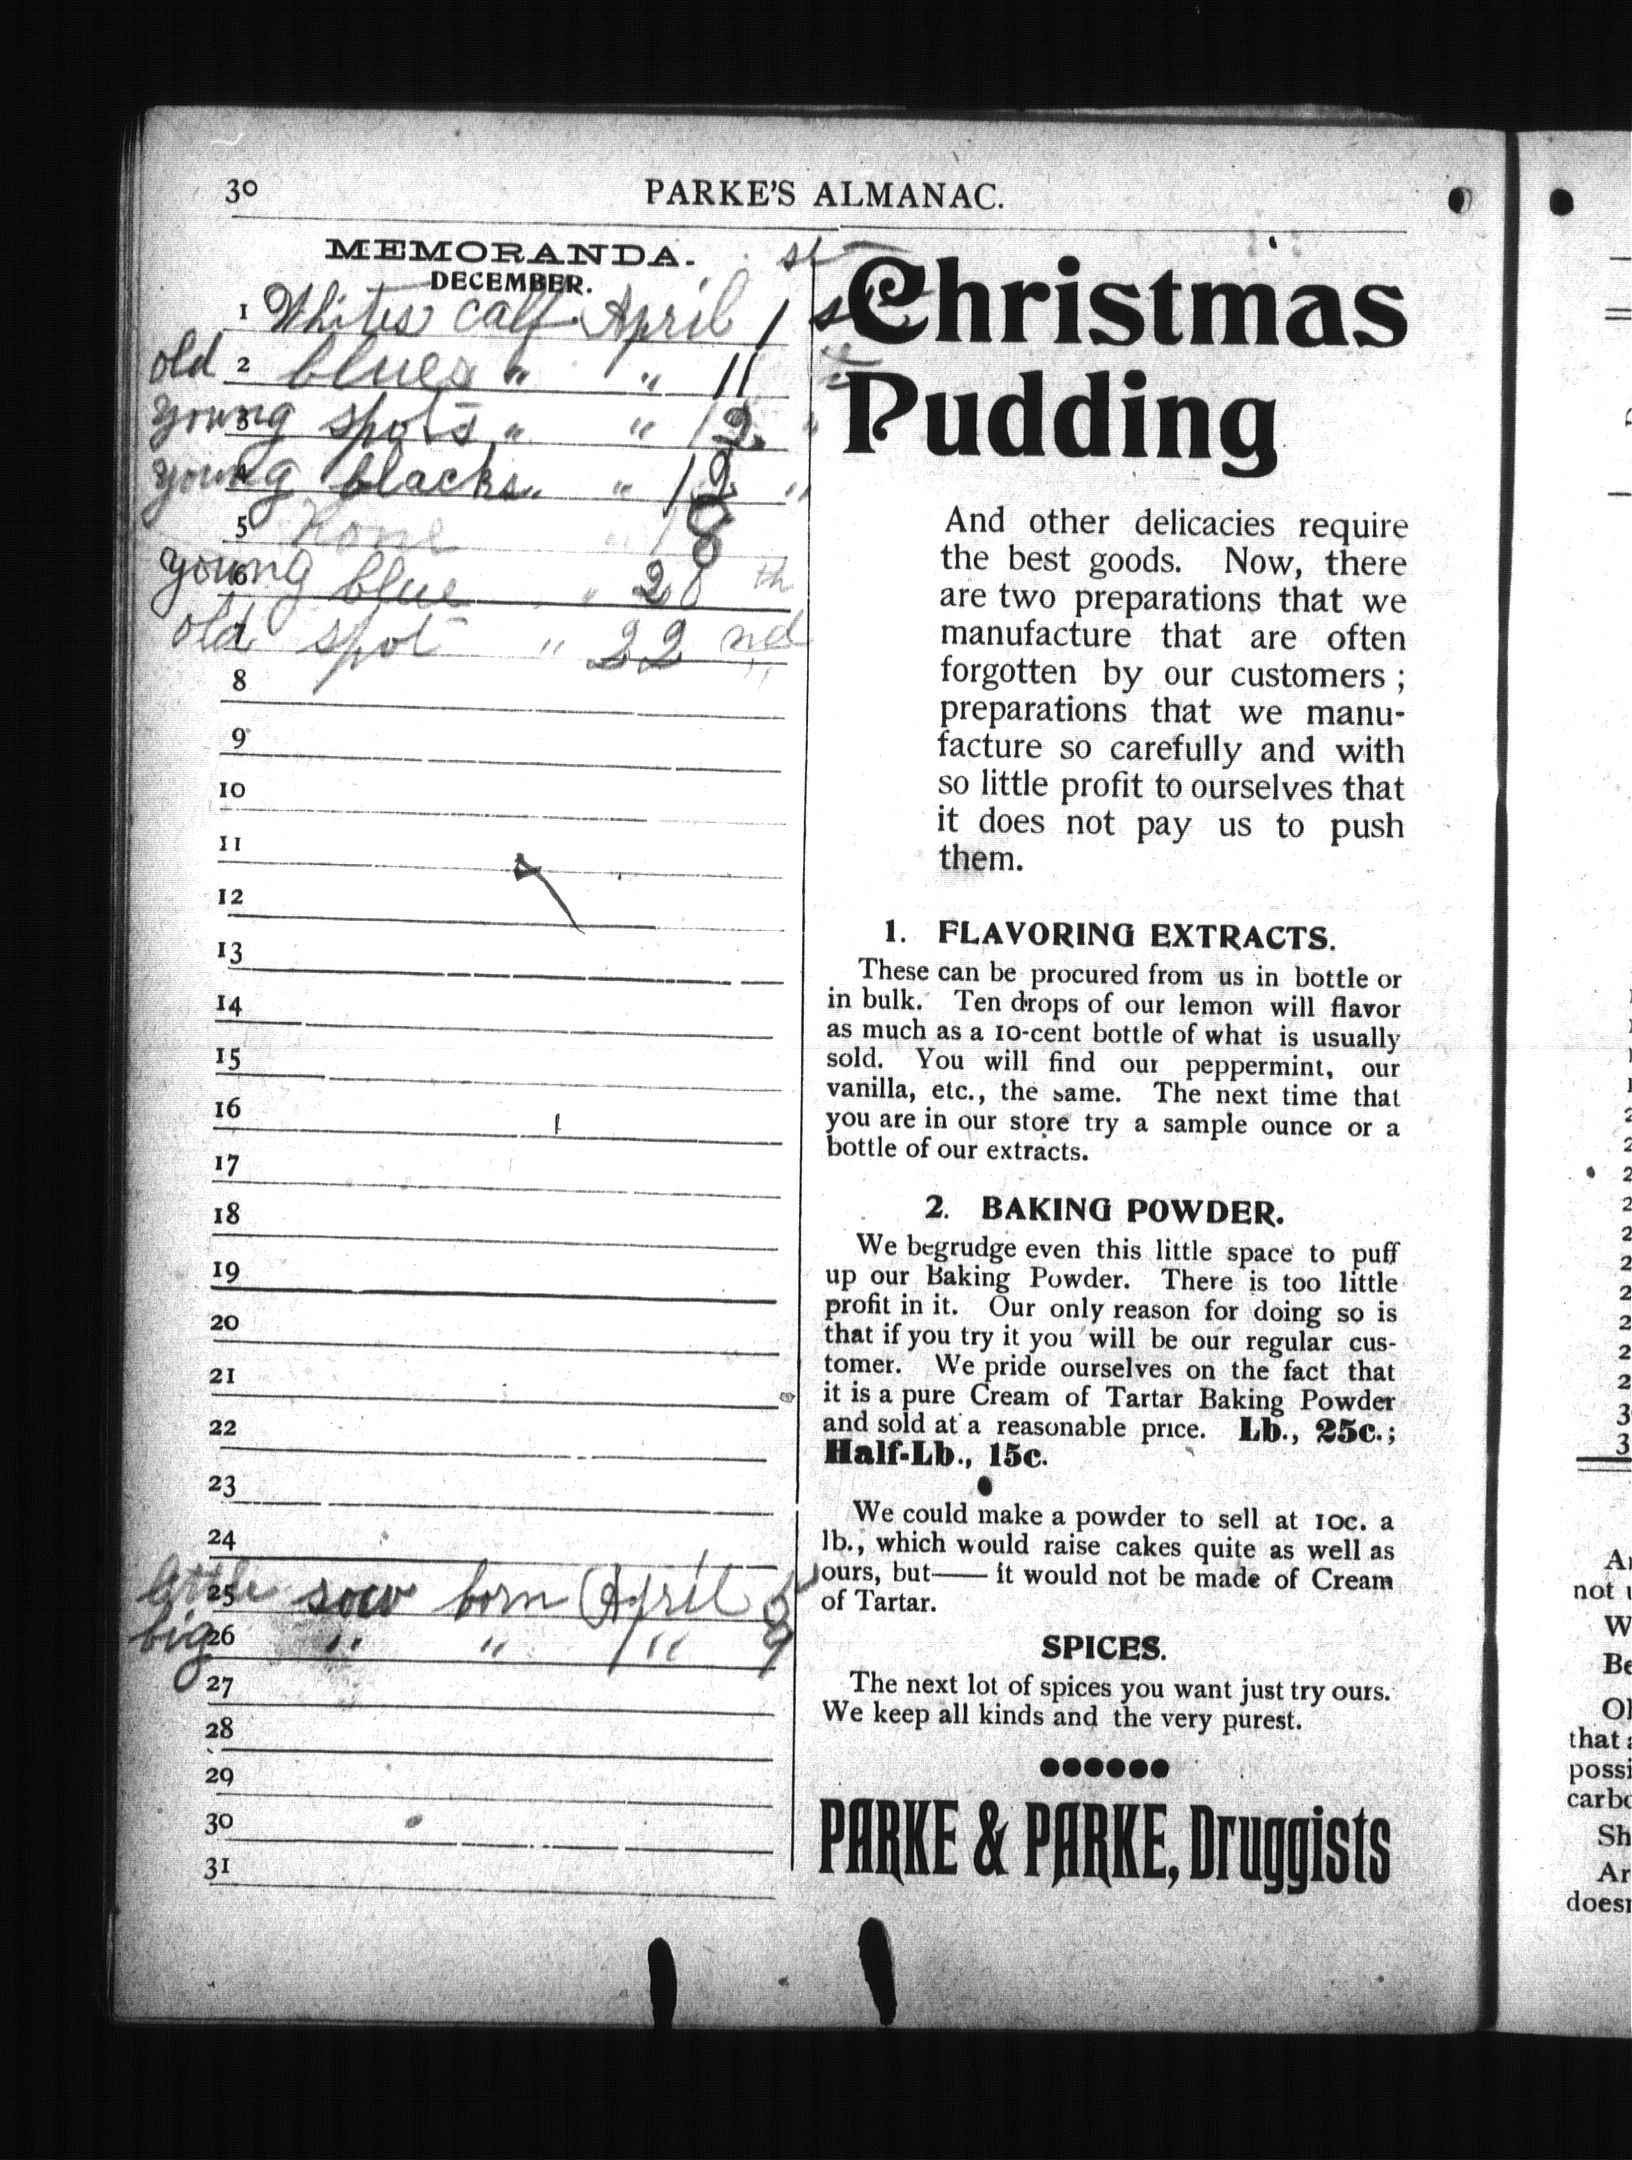 30
PARKE'S ALMANAC.
MEMORANDA.
DECEMBER.
st
1 Whites calf April 1 st
old 2 blues " " 11
young 3 spots " " 12 "
young 4 blacks " " 12 "
5 " 18
young 6 blue " " 28 th
old 7 spot " 22 nd
8
9
10
11
12
13
14
15
16
17
18
19
20
21
22
23
24
little 25 sow born April
big 26 " " " 9
27
28
29
30
31
Christmas
Pudding
And other delicacies require
the best goods. Now, there
are two preparations that we
manufacture that are often
forgotten by our customers ;
preparations that we manu-
facture so carefully and with
so little profit to ourselves that
it does not pay us to push
them.
1. FLAVORING EXTRACTS.
These can be procured from us in bottle or
in bulk. Ten drops of our lemon will flavor
as much as a 10-cent bottle of what is usually
sold. You will find our peppermint, our
vanilla, etc., the same. The next time that
you are in our store try a sample ounce or a
bottle of our extracts.
2. BAKING POWDER.
We begrudge even this little space to puff
up our Baking Powder. There is too little
profit in it. Our only reason for doing so is
that if you try it you will be our regular cus-
tomer. We pride ourselves on the fact that
it is a pure Cream of Tartar Baking Powder
and sold at a reasonable price. Lb., 25c.;
Half-Lb., 15c.
We could make a powder to sell at 10c. a
lb., which would raise cakes quite as well as
ours, but—— it would not be made of Cream
of Tartar.
SPICES.
The next lot of spices you want just try ours.
We keep all kinds and the very purest.
PARKE & PARKE, Druggists